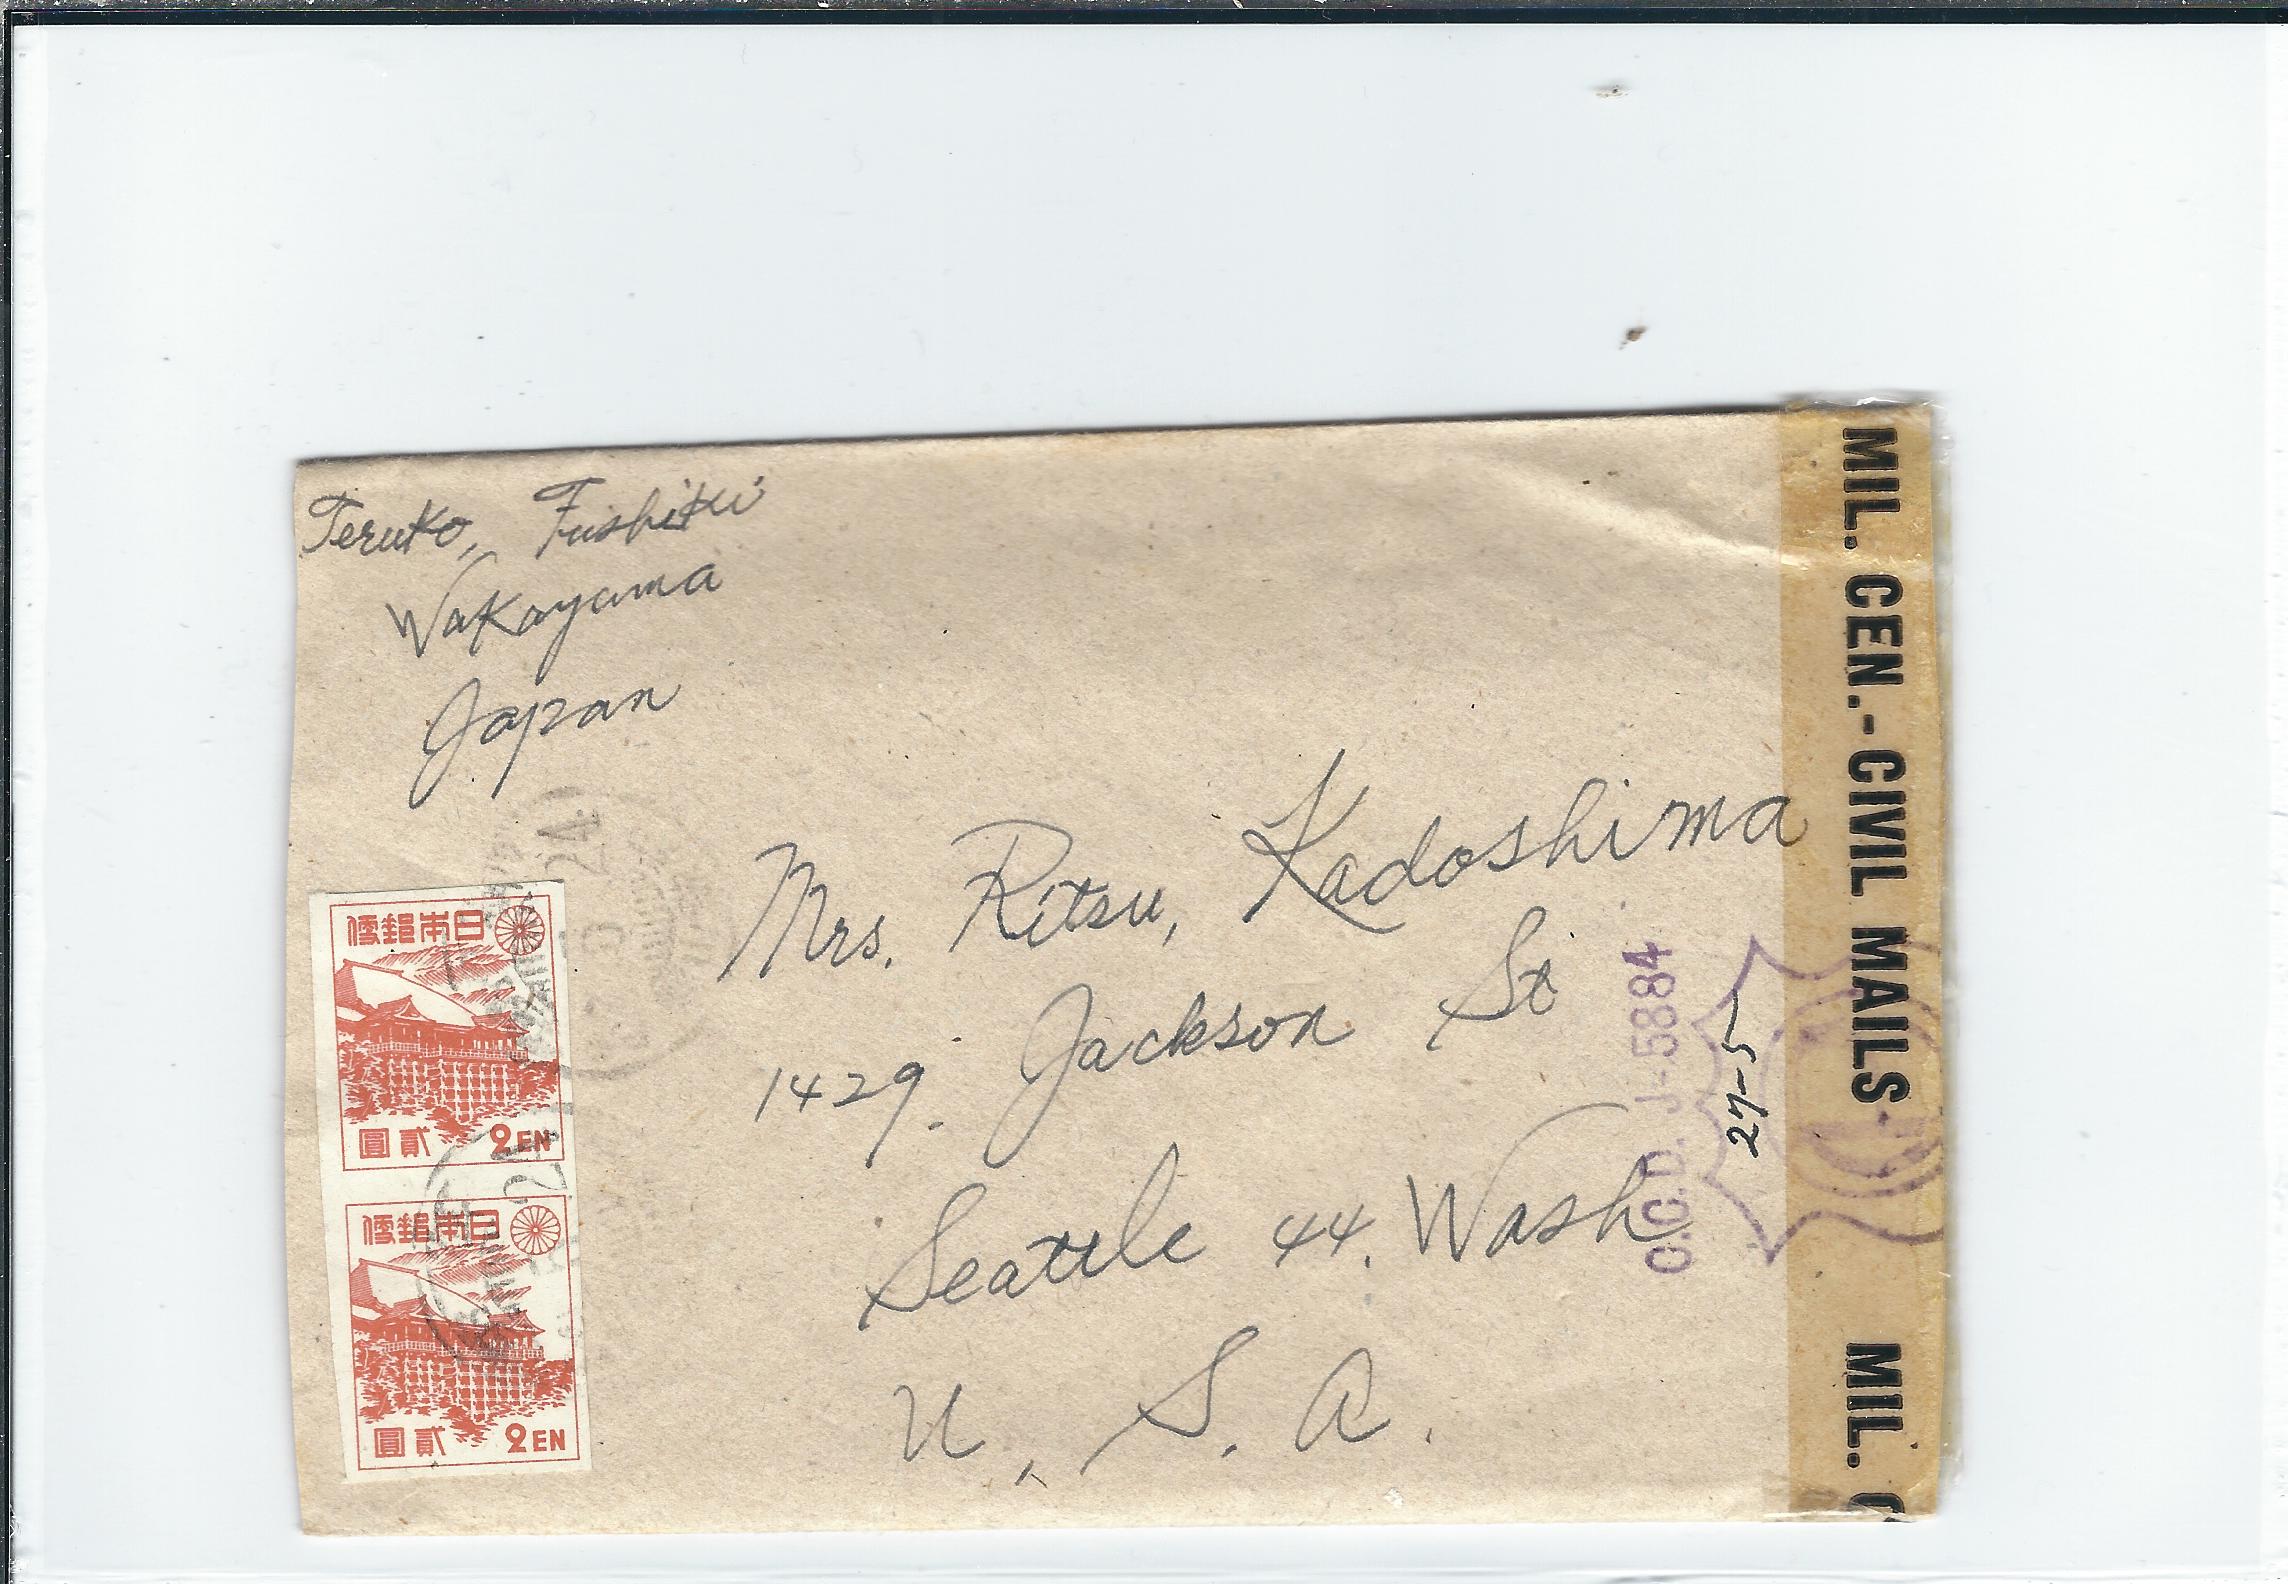 Teruko, Fushiki
Wakayama
Japan
Mrs. Ritsu, Kadoshima
1429. Jackson St
Seattle 44. Wash
U. S. A.
便郵本日
圓貳 2EN
便郵本日
圓貳 2EN
24.
C.C.D. J-5884
27-5
MIL. CEN.-CIVIL MAILS
MIL. C